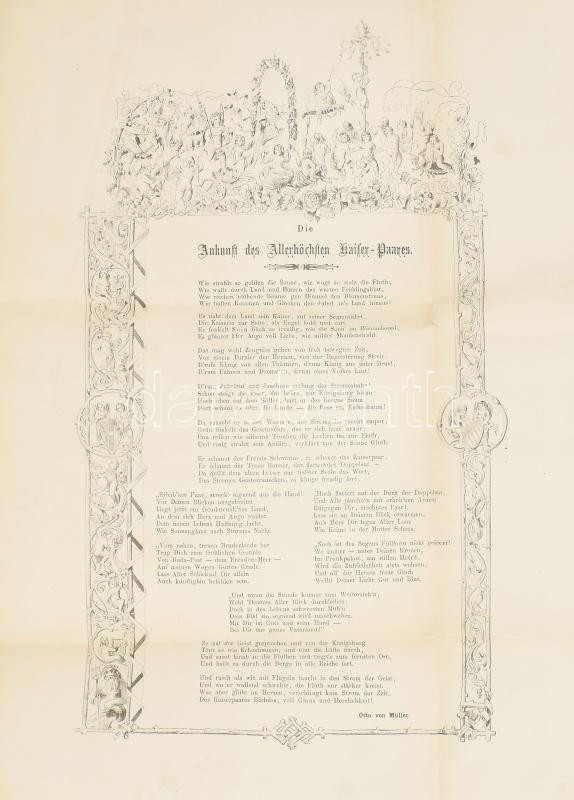 Die
Ankunft des Allerhöchsten Kaiser-Paares.
Wie strahlt so golden die Sonne, wie wogt so stolz die Fluth,
Wie wallt durch Land und Herzen das warme Frühlingsblut,
Wie reichen blühende Bäume gen Himmel den Blumenstraus,
Wie hallen Kanonen und Glocken den Jubel in's Land hinaus!
Es naht dem Land sein Kaiser, auf seiner Segensfahrt,
Die Kaiserin zur Seite, als Engel hold und zart.
Es funkelt Sein Blick so freudig, wie die Sonn' am Himmelszelt,
Es glänzet Ihr Auge voll Liebe, wie milder Mondenstrahl.
Das mag wohl Zeugniss geben von froh bewegter Zeit,
Von einem Turnier der Herzen, von der Begeisterung Streit:
D'rum Klang von allen Thürmen, d'rum Klang aus jeder Brust,
D'rum Fahnen und eines Volkes Lust!
D'rum und Jauchzen entlang der
Schon steigt der zur Königsburg hinan!
Hoch oben auf dem Söller, hart an des Berges Saum,
Dort schaut sie über die Lande — die Rose am
Da rauscht er in den Wassern, der Stromgeist taucht empor,
Grün funkelt das Geschmeide, das er sich heut' erkor;
Ihm rollen wie silberne Trauben die Locken bis zur Fluth,
Und rosig strahlt sein Antlitz, verklärt von der Sonne Gluth.
Er schauet der Freude Schwünge, er schauet das Kaiserpaar,
Er schauet das Treue Banner, den flatternden Doppelaar —
Da quillt dem alten Ister aus tiefster Seele das Wort,
Des Stromes Geisterrauschen, es klinge freudig fort:
„Erhab'nes Paar, streck' segnend aus die Hand!
Vor Deinen Blicken ausgebreitet
Liegt jetzt ein freudetrunk'nes Land,
An dem sich Herz und Auge weidet
Dem neuen Lebens Hoffnung lacht,
Wie Sonnenglanz nach Sturmes Nacht.
„Vom nahen, treuen Bruderlande her
Trug Dich zum fröhlichen Gestade
Von Buda-Pest — dem Freuden-Meer —
Auf meinen Wogen Gottes Gnade.
Lass Aller Schicksal Dir allein
Auch künftighin befohlen sein.
„Hoch flattert auf der Burg der Doppelaar,
Und Alle jauchzen mit erhob'nen Armen
Entgegen Dir, ersehntes Paar!
Lass sie an Deinem Blick erwarmen,
An's Herz Dir legen Aller Loos
Wie Keime in der Mutter Schoos.
„Noch ist des Segens Füllhorn nicht geleert!
Wo immer — unter Deinen Kronen,
Im Prunkpalast, am stillen Heerd,
Wird die Zufriedenheit stets wohnen,
Und all' der Herzen treue Gluth
Weiht Deiner Liebe Gut und Blut.
„Und wenn die Stunde kommt zum Weiterzieh'n,
Wohl Thränen Aller Blick durchbeben:
Doch in des Lebens schwersten Müh'n
Dein Bild sie segnend wird umschweben.
Mit Dir ist Gott und seine Hand —
Bei Dir das ganze Vaterland!"
So hat der Geist gesprochen und von der Königsburg
Tönt es wie Echostimmen, und tönt die Lüfte durch,
Und saust hinab in die Fluthen und trägt's zum fernsten Ost,
Und hallt es durch die Berge in alle Reiche fort.
Und rasch als wie mit Flügeln taucht in den Strom der Geist,
Und wo er wallend schwebte, die Fluth nur stärker kreist.
Was aber glüht im Herzen, verschlingt kein Strom der Zeit,
Des Kaiserpaares Bildniss, voll Glanz und Herrlichkeit!
Otto von Müller.
darabanth